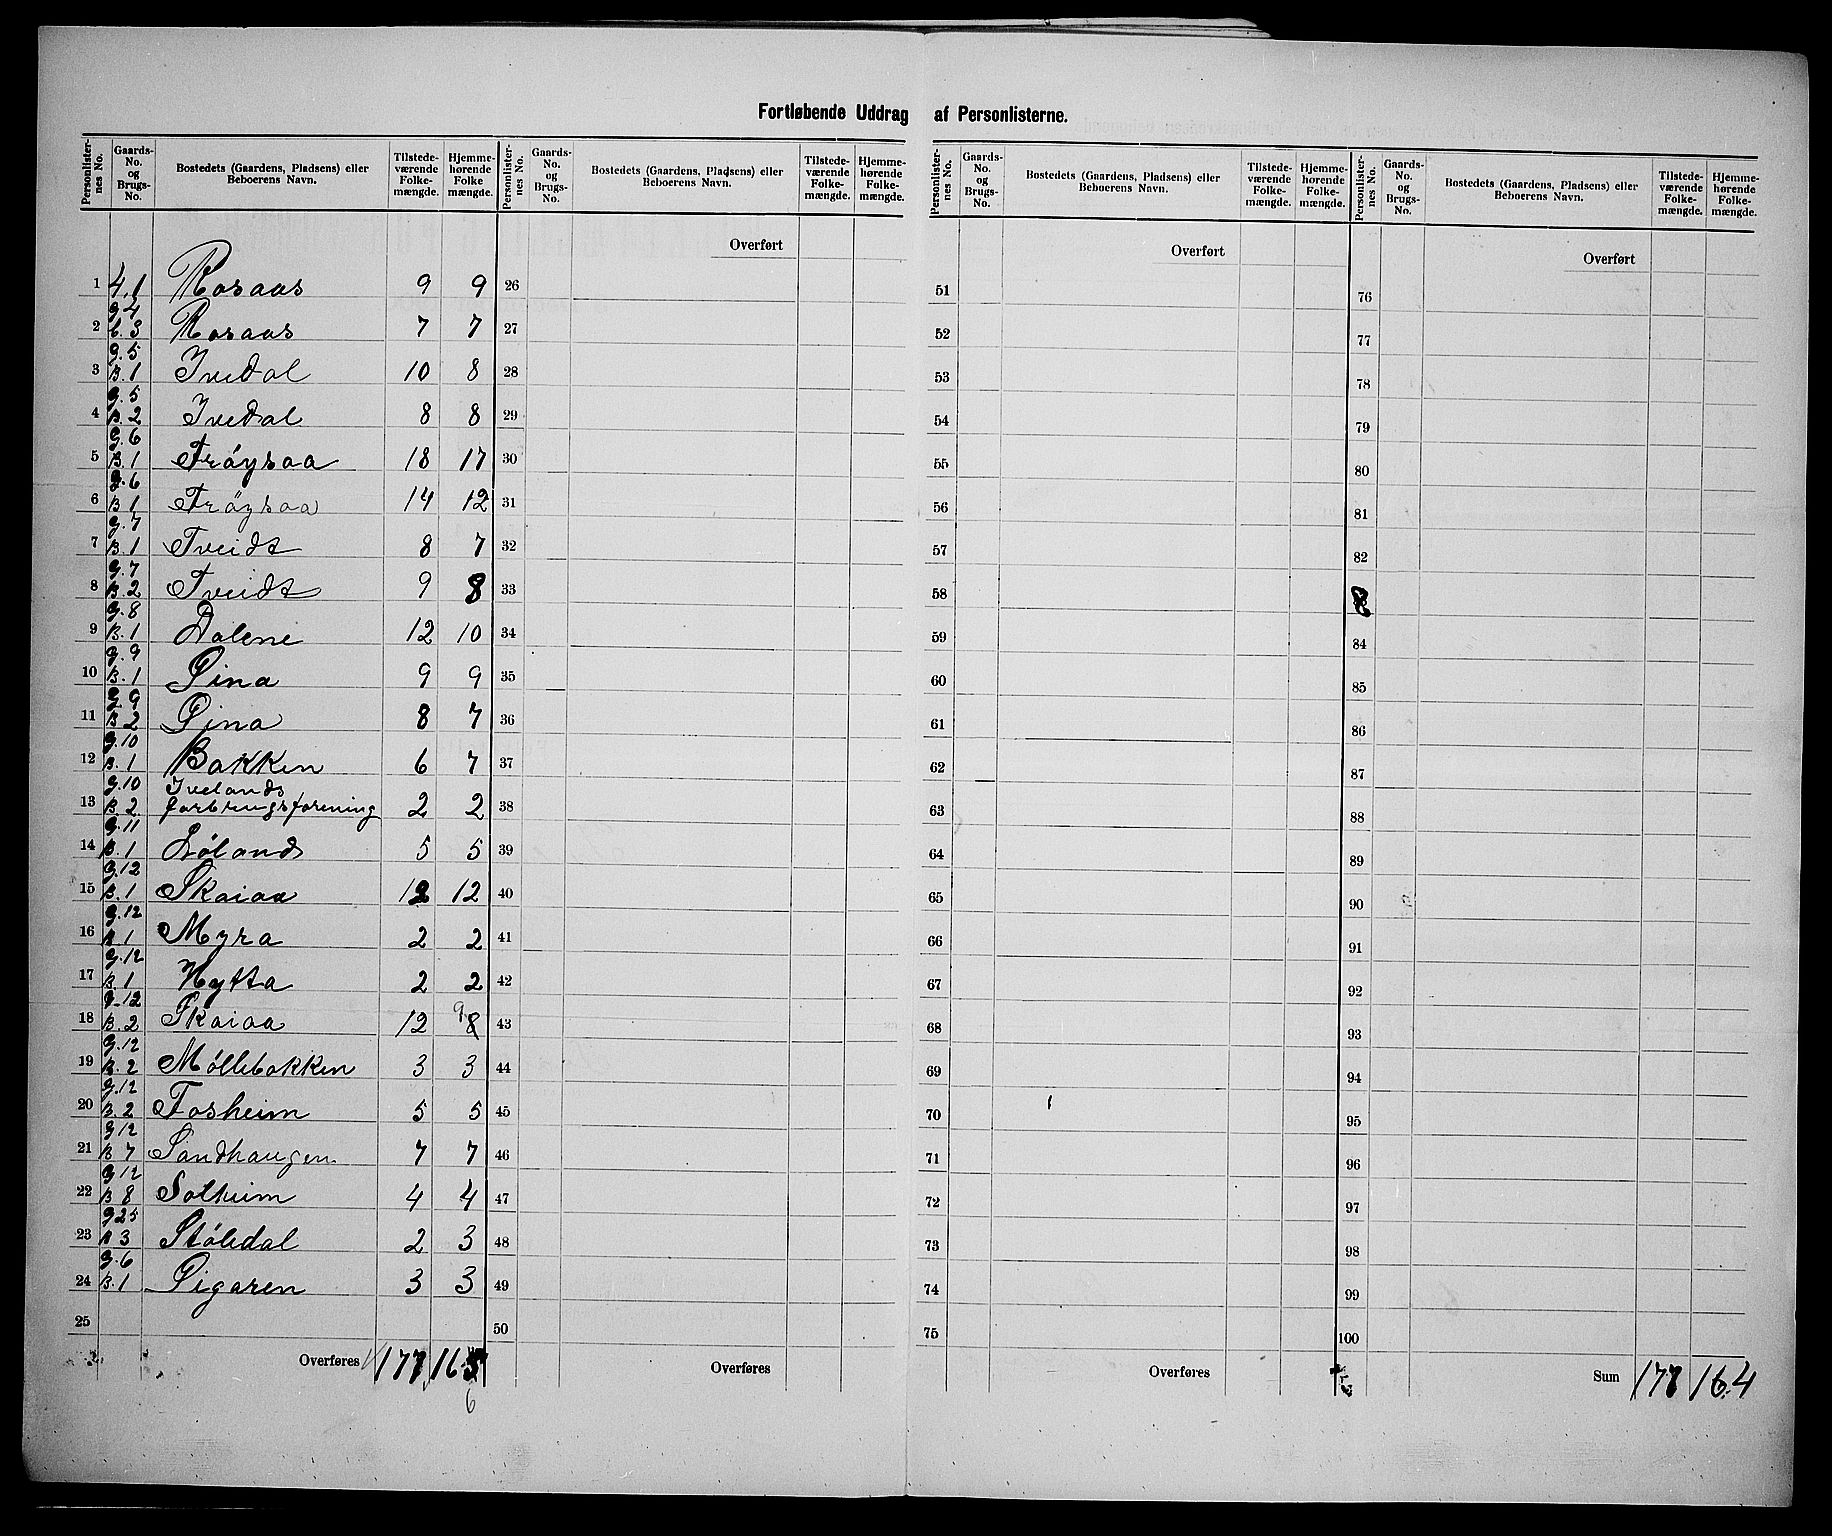 Fortløbende Uddrag af Personlisterne.
Personlister-nes No. Gaards-No. og Brugs-No. Bostedets (Gaardens, Pladsens) eller Beboerens Navn. Tilstede-værende Folke-mængde. Hjemme-hørende Folke mængde.
Personlister-nes No. Gaards-No. og Brugs-No. Bostedets (Gaardens, Pladsens) eller Beboerens Navn. Tilstede-værende Folke-mængde. Hjemme-hørende Folke-mængde.
Personlister-nes No. Gaards-No. og Brugs-No. Bostedets (Gaardens, Pladsens) eller Beboerens Navn. Tilstede-værende Folke-mængde. Hjemme-hørende Folke-mængde.
Personlister-nes No. Gaards-No. og Brugs-No. Bostedets (Gaardens, Pladsens) eller Beboerens Navn. Tilstede-værende Folke-mængde. Hjemme-hørende Folke-mængde.
Overført Overført Overført
1 4.1 Rosaas 9 9 26 51 76
2 g4 b.3 Rosaas 7 7 27 52 77
3 g.5 B.1 Ivedal 10 8 28 53 78
4 g.5 B.2 Ivedal 8 8 29 54 79
5 g.6 B.1 Frøysaa 18 17 30 55 80
6 g.6 B1 Frøysaa 14 12 31 56 81
7 g.7 B.1 Tveidt 8 7 32 57 82
8 g.7 B.2 Tveidt 9 8 33 58
9 g.8 B.1 Dalene 12 10 34 59 84
10 g.9 B.1 Pina 9 9 35 60 85
11 g9 B2 Pina 8 7 36 61 86
12 g.10 B.1 Bakken 6 7 37 62 87
13 g.10 B.2 Ivelands forbrugsforening 2 2 38 63 88
14 g.11 B.1 Løland 5 5 39 64 89
15 g.12 B.1 Skaiaa 12 12 40 65 90
16 g.12 B1 Myra 2 2 41 66 91
17 g.12 B.1 Hytta 2 2 42 67 92
18 g.12 B.2 Skaiaa 12 9 8 43 68 93
19 g.12 B.2 Møllebakken 3 3 44 69 94
20 g.12 B.2 Fosheim 5 5 45 70 95
21 g12 B7 Sandhaugen. 7 7 46 71 96
22 g12 B8 Solheim 4 4 47 72 97
23 g25 B3 Støledal 2 3 48 73 98
24 g.6 B.1 Pigaren 3 3 49 74 99
25 50 75 100
Overføres 177 165 6 Overføres Overføres Sum 177 164